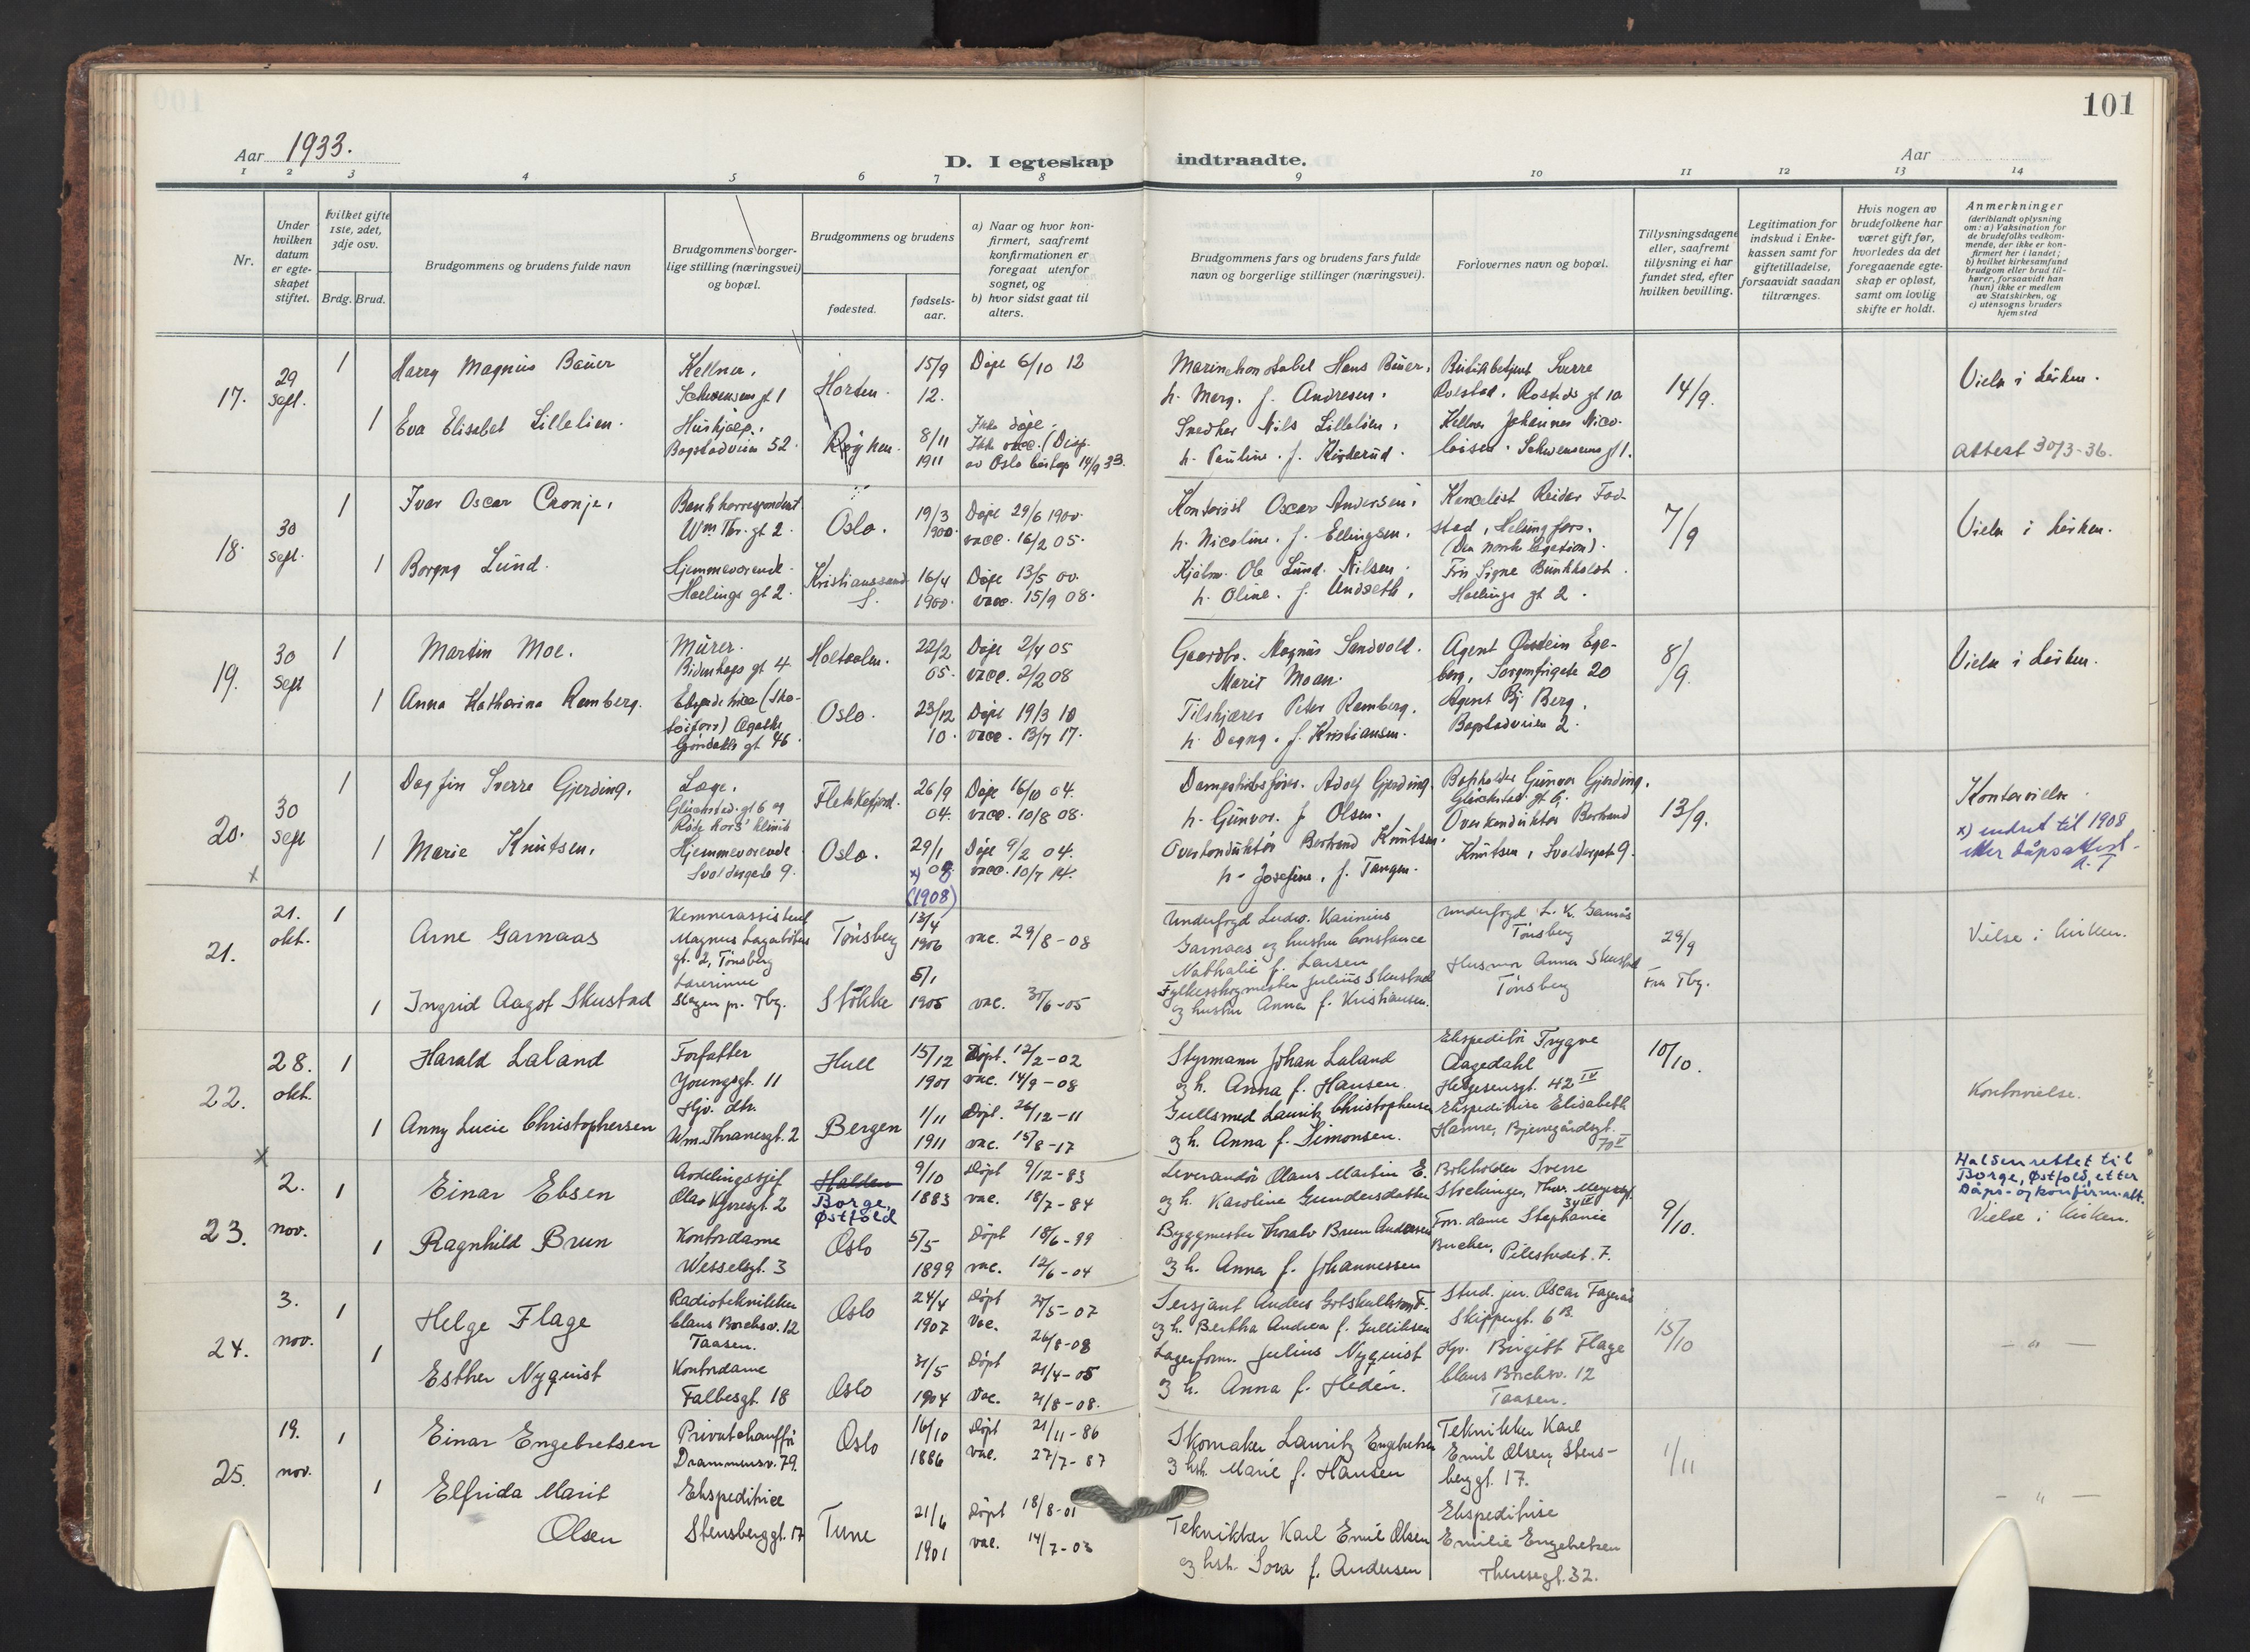 101
Aar 1933.
D. I egteskap indtraadte.
Aar
1 2 3 4 5 6 7 8 9 10 11 12 13 14
Nr.
Under hvilken datum er egteskapet stiftet.
hvilket gifte 1ste, 2det, 3dje osv.
Brdg. Brud.
Brudgommens og brudens fulde navn
Brudgommens borgerlige stilling (næringsvei) og bopæl.
Brudgommens og brudens
fødested.
fødsels-aar.
a) Naar og hvor konfirmert, saafremt konfirmationen er foregaat utenfor sognet, og
b) hvor sidst gaat til alters.
Brudgommens fars og brudens fars fulde navn og borgerlige stillinger (næringsvei).
Forlovernes navn og bopæl.
Tillysningsdagene eller, saafremt tillysning ei har fundet sted, efter hvilken bevilling.
Legitimation for indskud i Enkekassen samt for giftetilladelse, forsaavidt saadan tiltrænges.
Hvis nogen av brudefolkene har været gift før, hvorledes da det foregaaende egteskap er opløst, samt om lovlig skifte er holdt.
Anmerkninger
(deriblandt oplysning om: a) Vaksination for de brudefolks vedkommende, der ikke er konfirmert her i landet; b) hvilket kirkesamfund brudgom eller brud tilhører, forsaavidt han (hun) ikke er medlem av Statskirken, og c) utensogns bruders hjemsted
17. 29 Sept. 1 Harry Magnus Bauer
Kellner, Schwensens gt 1
Horten. 15/9 12. Døpt 6/10 12
Hans Bauer, h. Marg. f. Andresen.
Sverre Rolstad, Rosteds gt 10
14/9. Vielse i kirken.
1 Eva Elisabet Lillelien.
Hushjælp, Bogstadveien 52.
Røyken. 8/11 1911 Ikke døpt. Ikke vacc. (Disp. av Oslo biskop 14/9 33.
Snedker Nils Lillelien, h. Pauline f.
Kellner Johannes Nicolaisen. Schwensens gt 1.
Attest 30/3-36.
18. 30 Sept. 1 Ivar Oscar Cronje,
Bankkorrespondent Wm Thr. gt 2.
Oslo. 19/3 1900. Døpt 29/6 1900. vacc. 16/2 05.
Kontorist Oscar Andersen, h. Nicoline. f. Ellingsen.
Kancelist Reidar Fodstad, Helsingfors. (Den norske Legation).
7/9 Vielse i kirken.
1 Borgny Lund.
Hjemmeværende. gt 2.
Kristianssund S. 16/4 1900. Døpt 13/5 00. vacc. 15/9 08.
Ole Lund Nilsen. h. Oline. f. Undseth.
Frk Signe gt 2.
19. 30 Sept 1 Martin Moe.
Murer. Bidenkaps gt 4.
Holtaalen. 22/2 05. Døpt 2/4 05 vacc. 2/2 08
Gaardbr. Magnus Sandvold. Marit Moan.
Agent Øistein Egeberg, Sorgenfrigate 20
8/9. Vielse i kirken.
1 Anna Katharina Ramberg.
Ekspeditrice (Skotøiforr) Agathe Grøndahls gt 46.
Oslo. 23/12 10. Døpt 19/3 10 vacc. 13/7 17.
Tilskjærer Peter Ramberg. h. Dagny. f. Kristiansen.
Agent Bj. Berg, Bogstadveien 2.
20. 30 Sept 1 Dagfin Sverre Gjerding.
Læge. Glückstad. gt 6 og Røde Kors' klinik
Flekkefjord. 26/9 04. Døpt 16/10 04. vacc. 10/8 08.
Dampskibsfører. Adolf Gjerding. h. Gunvor. f. Olsen.
Gunvor Gjerding. Glückstad. gt 6.
13/9. Kontorvielse.
1 Marie Knutsen.
Hjemmeværende. Svoldergate 9.
Oslo. 29/1 x) 08 (1908) Døpt 9/2 04. vacc. 10/7 14.
Overkonduktør Bertrand Knutsen. h. Josefine, f. Tangen.
Overkonduktør Bertrand Knutsen, Svoldergate 9.
x) endret til 1908 etter dåpsattest.
21. 21. okt. 1 Arne Garnaas
Kemnerassistent Magnus Lagabøters gt. 2, Tønsberg
Tønsberg 13/4 1906 vac. 29/8-08
Underfogd Ludv. Karinius Garnaas og hustru Constance Nathalie f. Larsen
Underfogd L. K. Garnås Tønsberg
29/9 Fra Tbg. Vielse i kirken.
1 Ingrid Aagot Skustad
Lærerinne Slagen pr. Tbg.
Stokke 5/1 1905 vac. 30/6-05
Fylkesskogmester Julius Skustad og hustru Anna f. Kristiansen.
Husmor Anna Skustad Tønsberg
22. 28. okt. 1 Harald Laland
Forfatter Youngsgt. 11
Hull 15/12 1901 Døpt. 12/2-02 vac. 14/9-08
Styrmann Johan Laland og h. Anna f. Hansen.
Ekspeditør Trygve Aagedahl Helgesensgt. 42 IV
10/10. Kontorvielse.
1 Anny Lucie Christophersen
Hjv. dtr. Wm. Thranesgt. 2
Bergen 1/11 1911 Døpt. 26/12-11 vac. 15/8-17
Gullsmed Lauritz Christophersen og h. Anna f. Simonsen.
Ekspeditrise Elisabeth Hamre, Bjerregårdsgt. 70 II
23. 2. nov. 1 Einar Ebsen
Avdelingssjef Olav Kyrresgt. 2
Halden Borge, Østfold 9/10 1883 Døpt 9/12-83 vac. 18/7-84
Leverandør Olaus Martin E. og h. Karoline Gundersdatter
Bokholder Sverre Stockinger, Thor. Meyersgt. 34 III
9/10. Halden rettet til Borge, Østfold, etter Dåps- og konfirm.att.
Vielse i kirken.
1 Ragnhild Brun
Kontordame Wesselsgt. 3
Oslo 5/5 1899 Døpt 18/6-99 vac. 12/6-04
Byggmester Thoralv Brun Andersen og h. Anna f. Johannessen
Forr. dame Stephanie Bucher, Pilestredet. 7.
24. 3. nov. 1 Helge Flage
Radiotekniker Claus Borchsv. 12 Taasen.
Oslo 24/4 1907 Døpt 21/5-07 Vac. 26/8-08
Sersjant Anders F. og h. Bertha Andrea f. Gulliksen
Stud. jur. Oscar Fagerås Skippergt. 6 B.
15/10 — " —
1 Esther Nyquist
Kontordame Falbesgt. 18
Oslo 31/5 1904 Døpt 21/4-05 Vac. 21/8-08.
Lagerform. Julius Nyquist og h. Anna f. Hedén.
Hjv. Birgitt Flage Claus Borchsv. 12 Taasen.
25. 19. nov. 1 Einar Engebretsen
Privatchauffør Drammensv. 79.
Oslo 16/10 1886 Døpt 21/11-86 vac. 27/7-87
Skomaker Lauritz Engebretsen og hst. Marie f. Hansen
Tekniker Karl Emil Olsen, Stensberggt. 17.
1/11 — " —
1 Elfrida Marit Olsen
Ekspeditrice Stensberggt. 17
Tune 21/6 1901 Døpt 18/8-01 vac. 14/7-03
Teknikker Karl Emil Olsen og hst. Lora f. Andersen
Ekspeditrise Emilie Engebretsen Theresegt. 32.